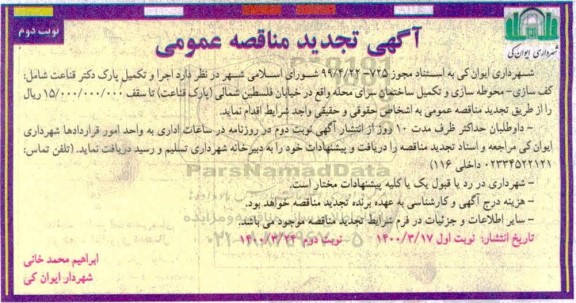 نوبت دوم
آگهی تجدید مناقصه عمومی
شهرداری ایوان کی
شهرداری ایوان کی به استناد مجوز ۷۲۵-۹۹/۲/۲۲ شورای اسلامی شهر در نظر دارد اجرا و تکمیل پارک دکتر قناعت شامل:
کف سازی- محوطه سازی و تکمیل ساختمان سرای محله واقع در خیابان فلسطین شمالی (پارک قناعت) تا سقف ۱۵/۰۰۰/۰۰۰/۰۰۰ ریال
را از طریق تجدید مناقصه عمومی به اشخاص حقوقی و حقیقی واجد شرایط اقدام نماید.
- داوطلبان حداکثر ظرف مدت ۱۰ روز از انتشار آگهی نوبت دوم در روزنامه در ساعات اداری به واحد امور قراردادها شهرداری
ایوان کی مراجعه و اسناد تجدید مناقصه را دریافت و پیشنهادات خود را به دبیرخانه شهرداری تسلیم و رسید دریافت نماید. (تلفن تماس:
۰۲۳۳۴۵۲۲۱۲۱ داخلی ۱۱۶)
- شهرداری در رد یا قبول یک یا کلیه پیشنهادات مختار است.
- هزینه درج آگهی و کارشناسی به عهده برنده تجدید مناقصه خواهد بود.
- سایر اطلاعات و جزئیات در فرم شرایط تجدید مناقصه موجود می باشد.
تاریخ انتشار: نوبت اول ۱۴۰۰/۳/۱۷ نوبت دوم ۱۴۰۰/۳/۲۳
ابراهیم محمد خانی
شهردار ایوان کی
ParsNamadData